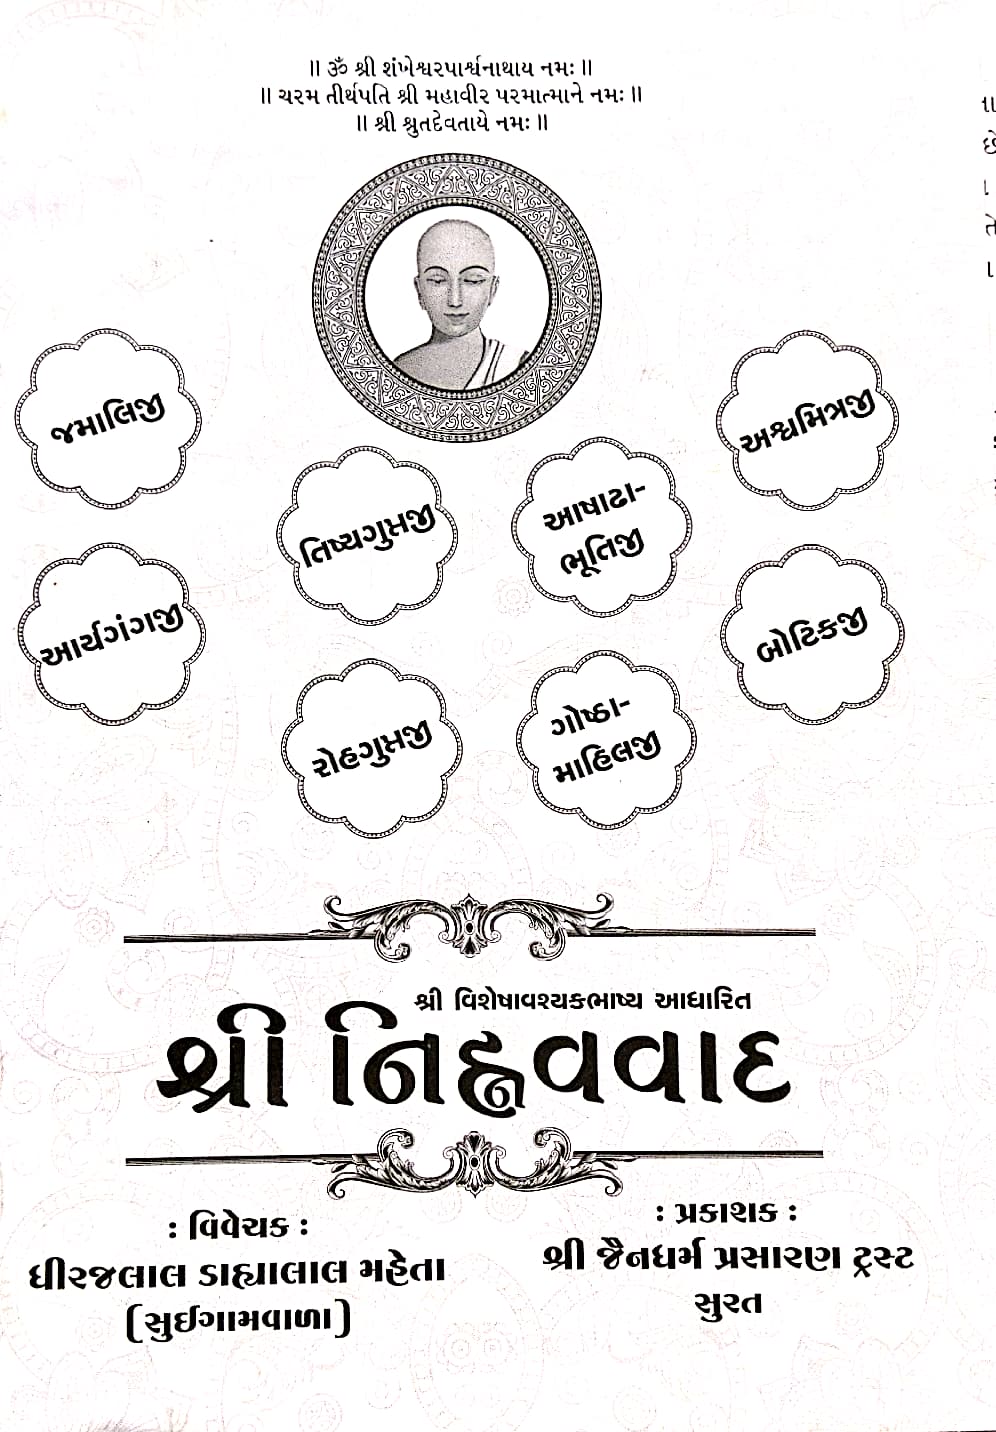 ॥ ૐ શ્રી શંખેશ્વરપાર્શ્વનાથાય નમઃ ॥
॥ ચરમ તીર્થપતિ શ્રી મહાવીર પરમાત્માને નમઃ ॥
॥ શ્રી શ્રુતદેવતાયે નમઃ ॥
જમાલિજી
અશ્વમિત્રજી
તિષ્યગુપ્તજી
આષાઢા-
ભૂતિજી
આર્યગંગજી
બોટિકજી
રોહગુપ્તજી
ગોષ્ઠા-
માહિલજી
શ્રી વિશેષાવશ્યકભાષ્ય આધારિત
શ્રી નિહ્નવવાદ
: વિવેચક :
ધીરજલાલ ડાહ્યાલાલ મહેતા
(સુઈગામવાળા)
: પ્રકાશક :
શ્રી જૈનધર્મ પ્રસારણ ટ્રસ્ટ
સુરત